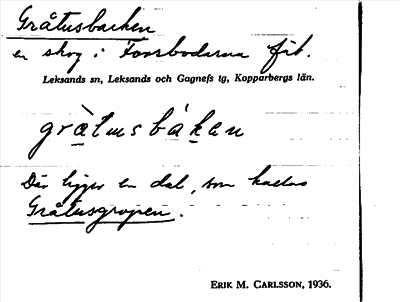 Gråtusbacken
en skog i Forsbodarna fäb.
Leksands sn, Leksands och Gagnefs tg, Kopparbergs län.
gràtusbákan
Där ligger en dal, som kallas
Gråtusgropen.
ERIK M. CARLSSON, 1936.